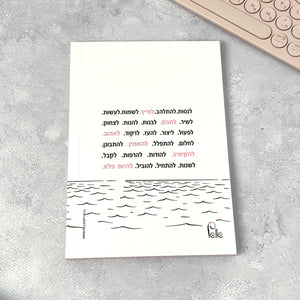 לנסות. להתלהב. לחייך. לשמוח. לעשות.
לשיר. להבין. לבנות. להנות. לצחוק.
לפעול. ליצור. להעז. לרקוד. לאהוב.
לחלום. להתפלל. להאמין. להתבונן.
להקשיב. להודות. להרפות. לקבל.
לשנות. להתחיל. להוביל. להיות פלא.
Pelle